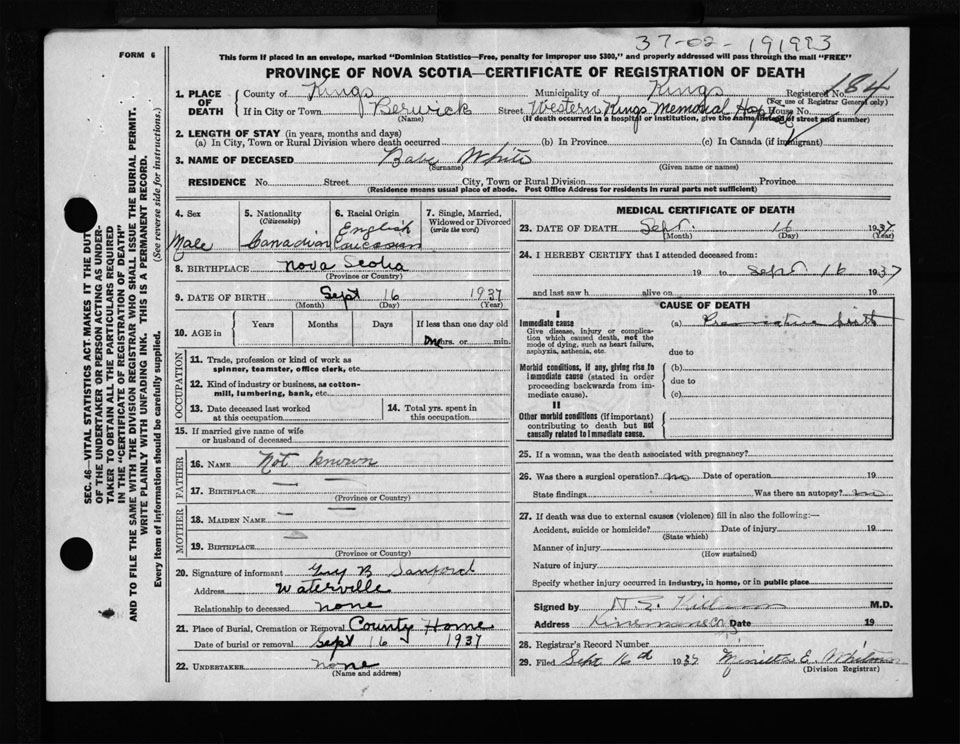 37-02-191993
FORM 6
This form if placed in an envelope, marked "Dominion Statistics—Free, penalty for improper use $300," and properly addressed will pass through the mail "FREE"
PROVINCE OF NOVA SCOTIA—CERTIFICATE OF REGISTRATION OF DEATH
1. PLACE OF DEATH County of Kings Municipality of Kings Registered No. 184
(For use of Registrar General only)
If in City or Town Berwick Street Western Kings Memorial Hospital House No.
(Name) (If death occurred in a hospital or institution, give the name instead of street and number)
2. LENGTH OF STAY (in years, months and days)
(a) In City, Town or Rural Division where death occurred (b) In Province (c) In Canada (if immigrant)
3. NAME OF DECEASED Babe White
(Surname) (Given name or names)
RESIDENCE No. Street City, Town or Rural Division Province
(Residence means usual place of abode. Post Office Address for residents in rural parts not sufficient)
4. Sex Male
5. Nationality (Citizenship) Canadian
6. Racial Origin English Caucasian
7. Single, Married, Widowed or Divorced (write the word)
8. BIRTHPLACE Nova Scotia
(Province or Country)
9. DATE OF BIRTH Sept 16 1937
(Month) (Day) (Year)
10. AGE in Years Months Days If less than one day old
hrs. or min.
OCCUPATION
11. Trade, profession or kind of work as spinner, teamster, office clerk, etc.
12. Kind of industry or business, as cotton-mill, lumbering, bank, etc.
13. Date deceased last worked at this occupation
14. Total yrs. spent in this occupation
15. If married give name of wife or husband of deceased
FATHER
16. NAME Not known
17. BIRTHPLACE — —
(Province or Country)
MOTHER
18. MAIDEN NAME — —
19. BIRTHPLACE
(Province or Country)
20. Signature of informant Guy B Sanford
Address Waterville
Relationship to deceased none
21. Place of Burial, Cremation or Removal County Home
Date of burial or removal Sept 16 1937
22. UNDERTAKER none
(Name and address)
MEDICAL CERTIFICATE OF DEATH
23. DATE OF DEATH Sept. 16 1937
(Month) (Day) (Year)
24. I HEREBY CERTIFY that I attended deceased from:
19 to Sept. 16 1937
and last saw h alive on 19
CAUSE OF DEATH
I
Immediate cause (a) Premature birth
Give disease, injury or complication which caused death, not the mode of dying, such as heart failure, asphyxia, asthenia, etc.
due to
Morbid conditions, if any, giving rise to immediate cause (stated in order proceeding backwards from immediate cause).
(b)
due to
(c)
II
Other morbid conditions (if important) contributing to death but not causally related to immediate cause.
25. If a woman, was the death associated with pregnancy?
26. Was there a surgical operation? no Date of operation 19
State findings Was there an autopsy? no
27. If death was due to external causes (violence) fill in also the following:—
Accident, suicide or homicide? Date of injury 19
(State which)
Manner of injury
(How sustained)
Nature of injury
Specify whether injury occurred in industry, in home, or in public place
Signed by M.D.
Address Date 19
28. Registrar's Record Number
29. Filed Sept 16th 1937
(Division Registrar)
SEC. 46—VITAL STATISTICS ACT. MAKES IT THE DUTY
OF THE UNDERTAKER OR PERSON ACTING AS UNDER-
TAKER TO OBTAIN ALL THE PARTICULARS REQUIRED
IN THE "CERTIFICATE OF REGISTRATION OF DEATH"
AND TO FILE THE SAME WITH THE DIVISION REGISTRAR WHO SHALL ISSUE THE BURIAL PERMIT.
WRITE PLAINLY WITH UNFADING INK. THIS IS A PERMANENT RECORD.
Every item of information should be carefully supplied. (See reverse side for instructions.)